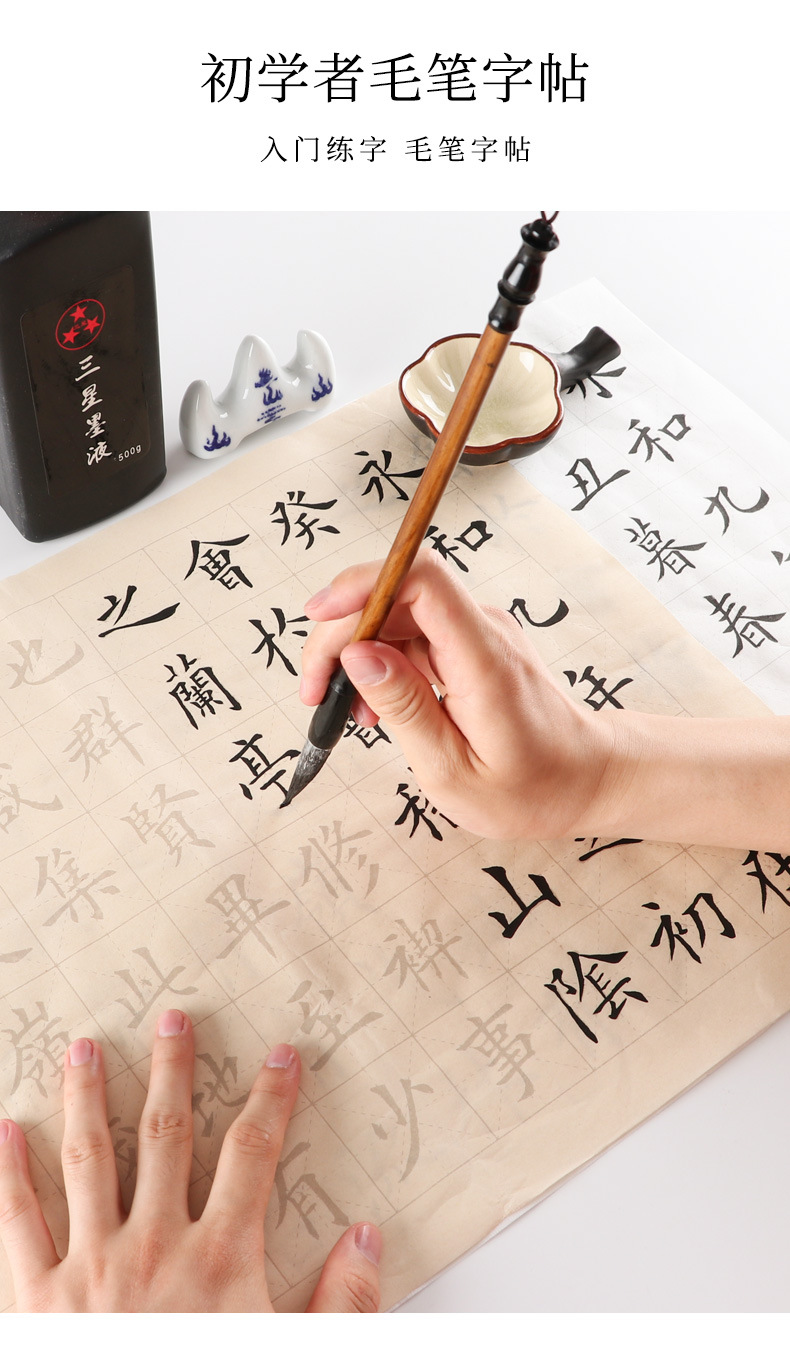 初学者毛笔字帖
入门练字 毛笔字帖
三星墨液
500g
永和九
丑暮春
永和九年在
癸之初
會於山陰
之蘭亭修禊事
也群賢畢至少
咸集此地有
嶺